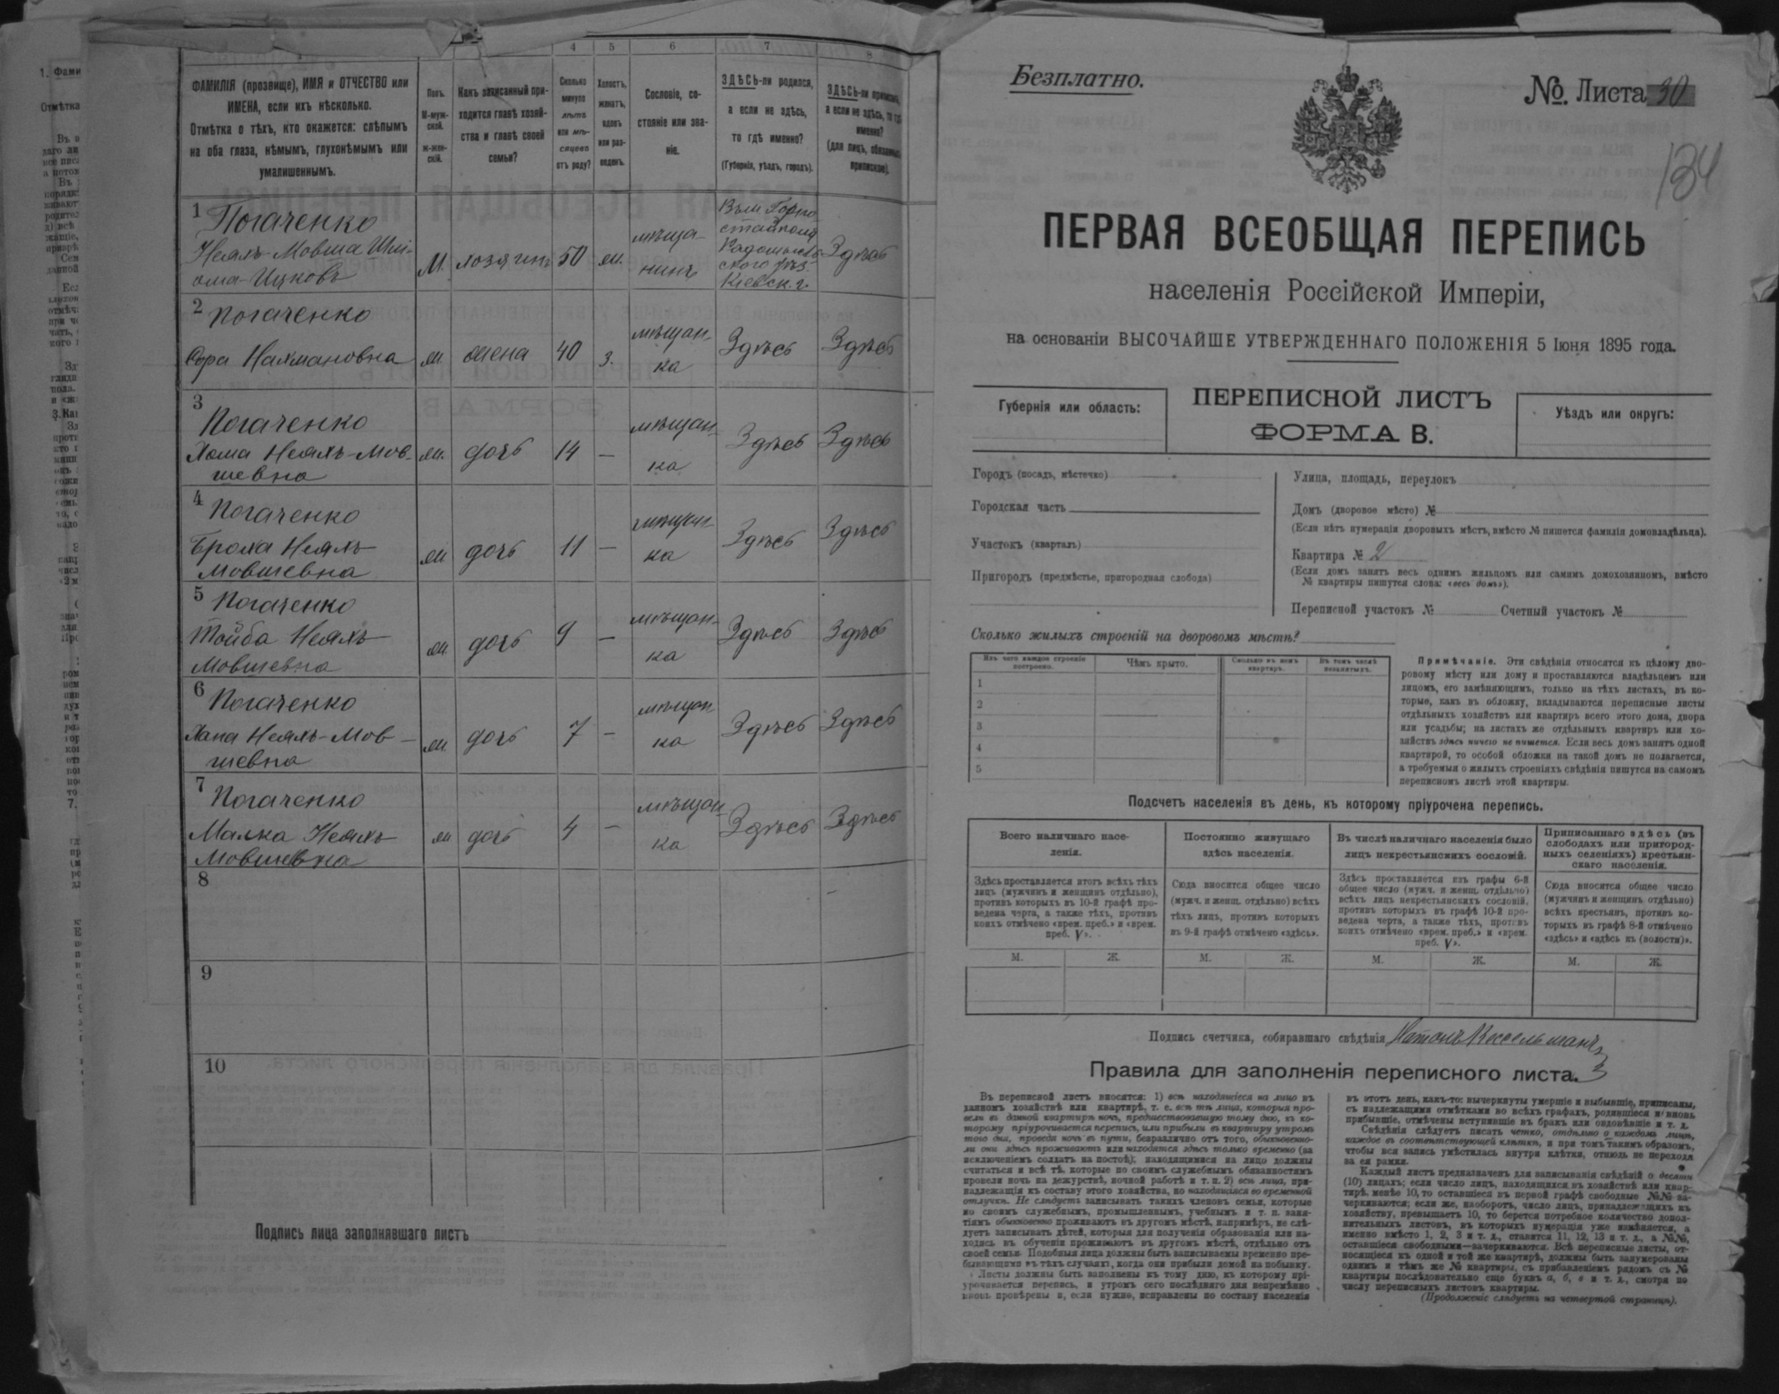 4 5 6 7 8
ФАМИЛІЯ (прозвище), ИМЯ и ОТЧЕСТВО или
ИМЕНА, если ихъ нѣсколько.
Отмѣтка о тѣхъ, кто окажется: слѣпымъ
на оба глаза, нѣмымъ, глухонѣмымъ или
умалишеннымъ.
Полъ.
М-муж-
ской.
Ж-жен-
скій.
Какъ записанный при-
ходится главѣ хозяй-
ства и главѣ своей
семьи?
Сколько
минуло
лѣтъ
или мѣ-
сяцевъ
отъ роду?
Холостъ,
женатъ,
вдовъ
или раз-
веденъ.
Сословіе, со-
стояніе или зва-
ніе.
ЗДѢСЬ-ли родился,
а если не здѣсь,
то гдѣ именно?
(Губернія, уѣздъ, городъ).
ЗДѢСЬ-ли приписанъ,
а если не здѣсь, то гдѣ
именно?
(для лицъ, обязанныхъ
припиской).
1 Погаченко
М. хозяинъ 50 ж. мѣща-
нинъ
Кіевск. г.
Здѣсь
2 Погаченко
Сура Нахмановна ж. жена 40 з. мѣщан-
ка Здѣсь Здѣсь
3 Погаченко
ж. дочь 14 — мѣщан-
шевна ка Здѣсь Здѣсь
4 Погаченко
ж. дочь 11 — мѣщан-
Мовшевна ка Здѣсь Здѣсь
5 Погаченко
Тойба ж. дочь 9 — мѣщан-
Мовшевна ка Здѣсь Здѣсь
6 Погаченко
Хана ж. дочь 7 — мѣщан-
шевна ка Здѣсь Здѣсь
7 Погаченко
Малка ж. дочь 4 — мѣщан-
Мовшевна ка Здѣсь Здѣсь
8
9
10
Подпись лица заполнявшаго листъ
Безплатно.
№ Листа 30
134
ПЕРВАЯ ВСЕОБЩАЯ ПЕРЕПИСЬ
населенія Россійской Имперіи,
на основаніи ВЫСОЧАЙШЕ УТВЕРЖДЕННАГО ПОЛОЖЕНІЯ 5 Іюня 1895 года.
Губернія или область:
ПЕРЕПИСНОЙ ЛИСТЪ
ФОРМА В.
Уѣздъ или округъ:
Городъ (посадъ, мѣстечко)
Городская часть
Участокъ (кварталъ)
Пригородъ (предмѣстье, пригородная слобода)
Улица, площадь, переулокъ
Домъ (дворовое мѣсто) №
(Если нѣтъ нумераціи дворовыхъ мѣстъ, вмѣсто № пишется фамилія домовладѣльца).
Квартира № 2
(Если домъ занятъ весь однимъ жильцомъ или самимъ домохозяиномъ, вмѣсто
№ квартиры пишутся слова: «весь домъ»).
Переписной участокъ № Счетный участокъ №
Сколько жилыхъ строеній на дворовомъ мѣстѣ?
Изъ чего каждое строеніе
построено.
Чѣмъ крыто.
Сколько въ немъ
квартиръ.
Въ томъ числѣ
незанятыхъ.
1
2
3
4
5
Примѣчаніе. Эти свѣдѣнія относятся къ цѣлому дво-
ровому мѣсту или дому и проставляются владѣльцемъ или
лицомъ, его замѣняющимъ, только на тѣхъ листахъ, въ ко-
торые, какъ въ обложку, вкладываются переписные листы
отдѣльныхъ хозяйствъ или квартиръ всего этого дома, двора
или усадьбы; на листахъ же отдѣльныхъ квартиръ или хо-
зяйствъ здѣсь ничего не пишется. Если весь домъ занятъ одной
квартирой, то особой обложки на такой домъ не полагается,
а требуемыя о жилыхъ строеніяхъ свѣдѣнія пишутся на самомъ
переписномъ листѣ этой квартиры.
Подсчетъ населенія въ день, къ которому пріурочена перепись.
Всего наличнаго насе-
ленія.
Здѣсь проставляется итогъ всѣхъ тѣхъ
лицъ (мужчинъ и женщинъ отдѣльно),
противъ которыхъ въ 10-й графѣ про-
ведена черта, а также тѣхъ, противъ
коихъ отмѣчено «врем. преб.» и «врем.
преб. V».
Постоянно живущаго
здѣсь населенія.
Сюда вносится общее число
(мужч. и женщ. отдѣльно) всѣхъ
тѣхъ лицъ, противъ которыхъ
въ 9-й графѣ отмѣчено «здѣсь».
Въ числѣ наличнаго населенія было
лицъ некрестьянскихъ сословій.
Здѣсь проставляется изъ графы 6-й
общее число (мужч. и женщ. отдѣльно)
всѣхъ лицъ некрестьянскихъ сословій,
противъ которыхъ въ графѣ 10-й про-
ведена черта, а также тѣхъ, противъ
коихъ отмѣчено «врем. преб.» и «врем.
преб. V».
Приписаннаго здѣсь (въ
слободахъ или пригород-
ныхъ селеніяхъ) крестьян-
скаго населенія.
Сюда вносится общее число
(мужчинъ и женщинъ отдѣльно)
всѣхъ крестьянъ, противъ ко-
торыхъ въ графѣ 8-й отмѣчено
«здѣсь» и «здѣсь въ (волости)».
М. Ж. М. Ж. М. Ж. М. Ж.
Подпись счетчика, собиравшаго свѣдѣнія
Правила для заполненія переписного листа.
Въ переписной листъ вносятся: 1) всѣ находящіеся на лицо въ
данномъ хозяйствѣ или квартирѣ, т. е. всѣ тѣ лица, которыя про-
вели въ данной квартирѣ ночь, предшествовавшую тому дню, къ ко-
торому пріурочивается перепись, или прибыли въ квартиру утромъ
того дня, проведя ночь въ пути, безразлично отъ того, обыкновенно-
ли они здѣсь проживаютъ или находятся здѣсь только временно (за
исключеніемъ солдатъ на постоѣ); находящимися на лицо должны
считаться и всѣ тѣ, которые по своимъ служебнымъ обязанностямъ
провели ночь на дежурствѣ, ночной работѣ и т. п. 2) всѣ лица, при-
надлежащія къ составу этого хозяйства, но находящіяся во временной
отлучкѣ. Не слѣдуетъ записывать такихъ членовъ семьи, которые
по своимъ служебнымъ, промышленнымъ, учебнымъ и т. п. заня-
тіямъ обыкновенно проживаютъ въ другомъ мѣстѣ, напримѣръ, не слѣ-
дуетъ записывать дѣтей, которыя для полученія образованія или на-
ходясь въ обученіи проживаютъ въ другомъ мѣстѣ, отдѣльно отъ
своей семьи. Подобныя лица должны быть записываемы временно пре-
бывающими въ тѣхъ случаяхъ, когда они прибыли домой на побывку.
Листы должны быть заполнены къ тому дню, къ которому прі-
урочивается перепись, и утромъ сего послѣдняго дня непремѣнно
вновь провѣрены и, если нужно, исправлены по составу населенія
въ этотъ день, какъ-то: вычеркнуты умершіе и выбывшіе, приписаны,
съ надлежащими отмѣтками во всѣхъ графахъ, родившіеся и вновь
прибывшіе, отмѣчены вступившіе въ бракъ или овдовѣвшіе и т. д.
Свѣдѣнія слѣдуетъ писать четко, отдѣльно о каждомъ лицѣ,
каждое въ соотвѣтствующей клѣткѣ, и при томъ такимъ образомъ,
чтобы вся запись умѣстилась внутри клѣтки, отнюдь не переходя
за ея рамки.
Каждый листъ предназначенъ для записыванія свѣдѣній о десяти
(10) лицахъ; если число лицъ, находящихся въ хозяйствѣ или квар-
тирѣ, менѣе 10, то оставшіеся въ первой графѣ свободные №№ за-
черкиваются; если же, наоборотъ, число лицъ, принадлежащихъ къ
хозяйству, превышаетъ 10, то берется потребное количество допол-
нительныхъ листовъ, въ которыхъ нумерація уже измѣняется, а
именно вмѣсто 1, 2, 3 и т. д., ставится 11, 12, 13 и т. д., а №№,
оставшіеся свободными—зачеркиваются. Всѣ переписные листы, от-
носящіеся къ одной и той же квартирѣ, должны быть занумерованы
однимъ и тѣмъ же № квартиры, съ прибавленіемъ рядомъ съ №
квартиры послѣдовательно еще буквъ а, б, в и т. д., смотря по
числу переписныхъ листовъ квартиры.
(Продолженіе слѣдуетъ на четвертой страницѣ).